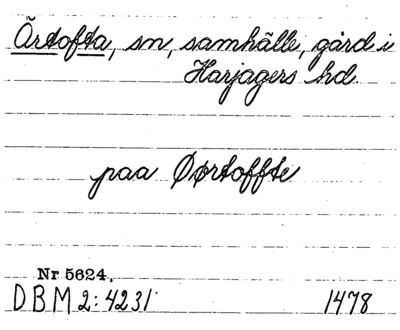 Örtofta, sn, samhälle, gård i
Harjagers hd.
paa Øørtoffte
Nr 5624.
DBM 2:4231 1478